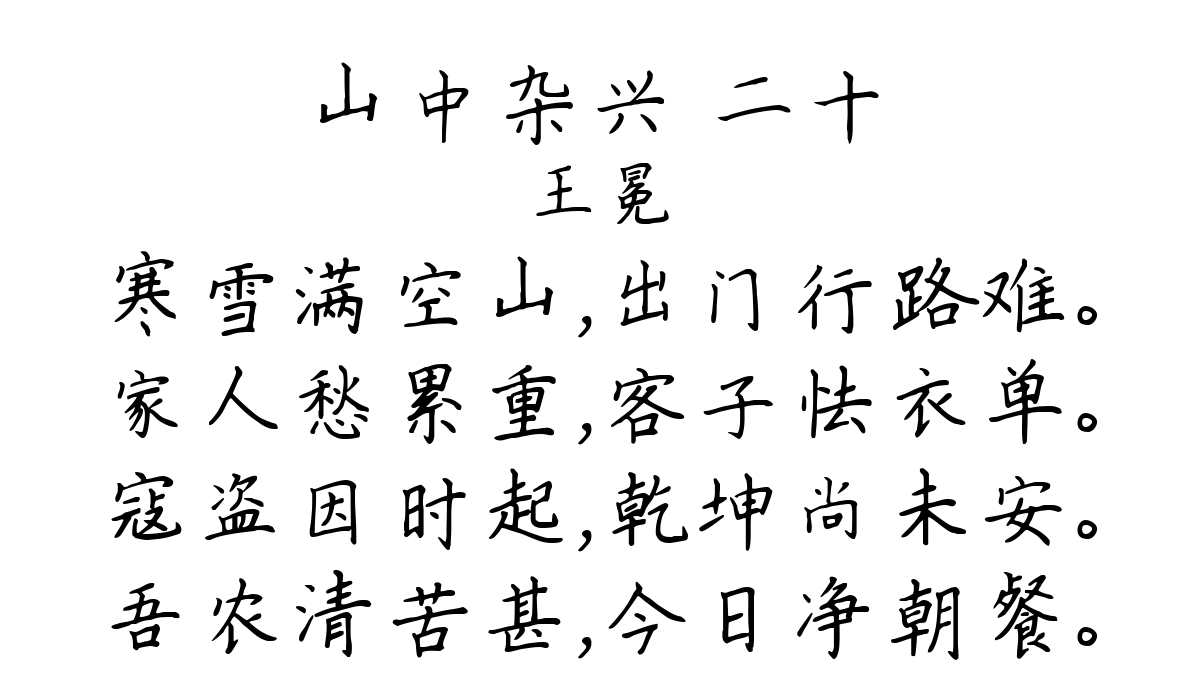 山中杂兴 二十
王冕
寒雪满空山,出门行路难。
家人愁累重,客子怯衣单。
寇盗因时起,乾坤尚未安。
吾农清苦甚,今日净朝餐。